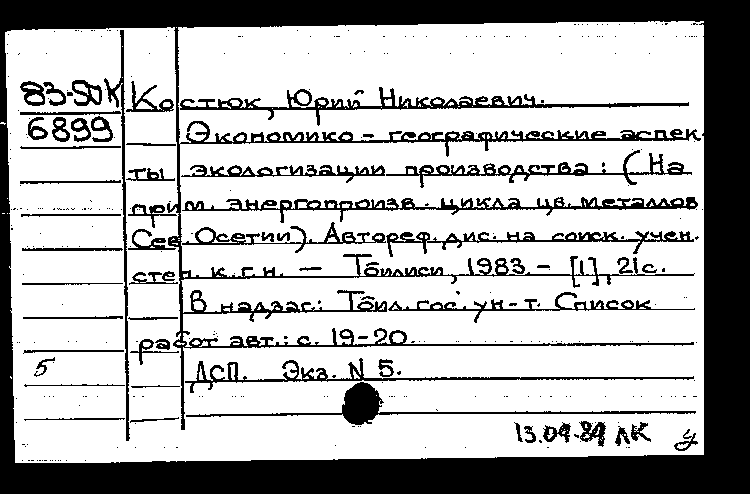 83-5ДК Костюк, Юрий Николаевич.
6899 Экономико-географические аспек-
ты экологизации производства: (На
прим. энергопроизв. цикла цв. металлов
Сев. Осетии). Автореф. дис. на соиск. учен.
степ. к.г.н. — Тбилиси, 1983. - [1], 21с.
В надзаг.: Тбил. гос. ун-т. Список
работ авт.: с. 19-20.
5 ДСП. Экз. N 5.
13.09.89 ЛК У